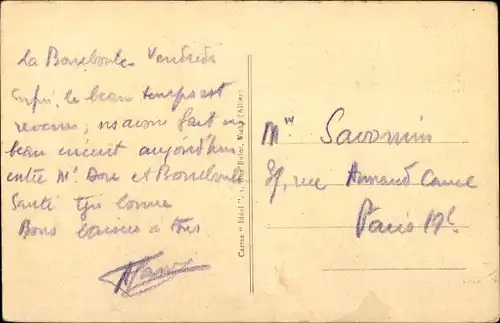 La Bourboule Vendredi
Enfin, le beau temps est
revenu, ns avons fait un
beau circuit aujourd'hui
entre Mt Dore et Bourboule
Santé tjrs bonne
Bons baisers à tous
Cartes "Idéal", Vichy (Allier)
Savornin
rue Armand Carrel
Paris 19e